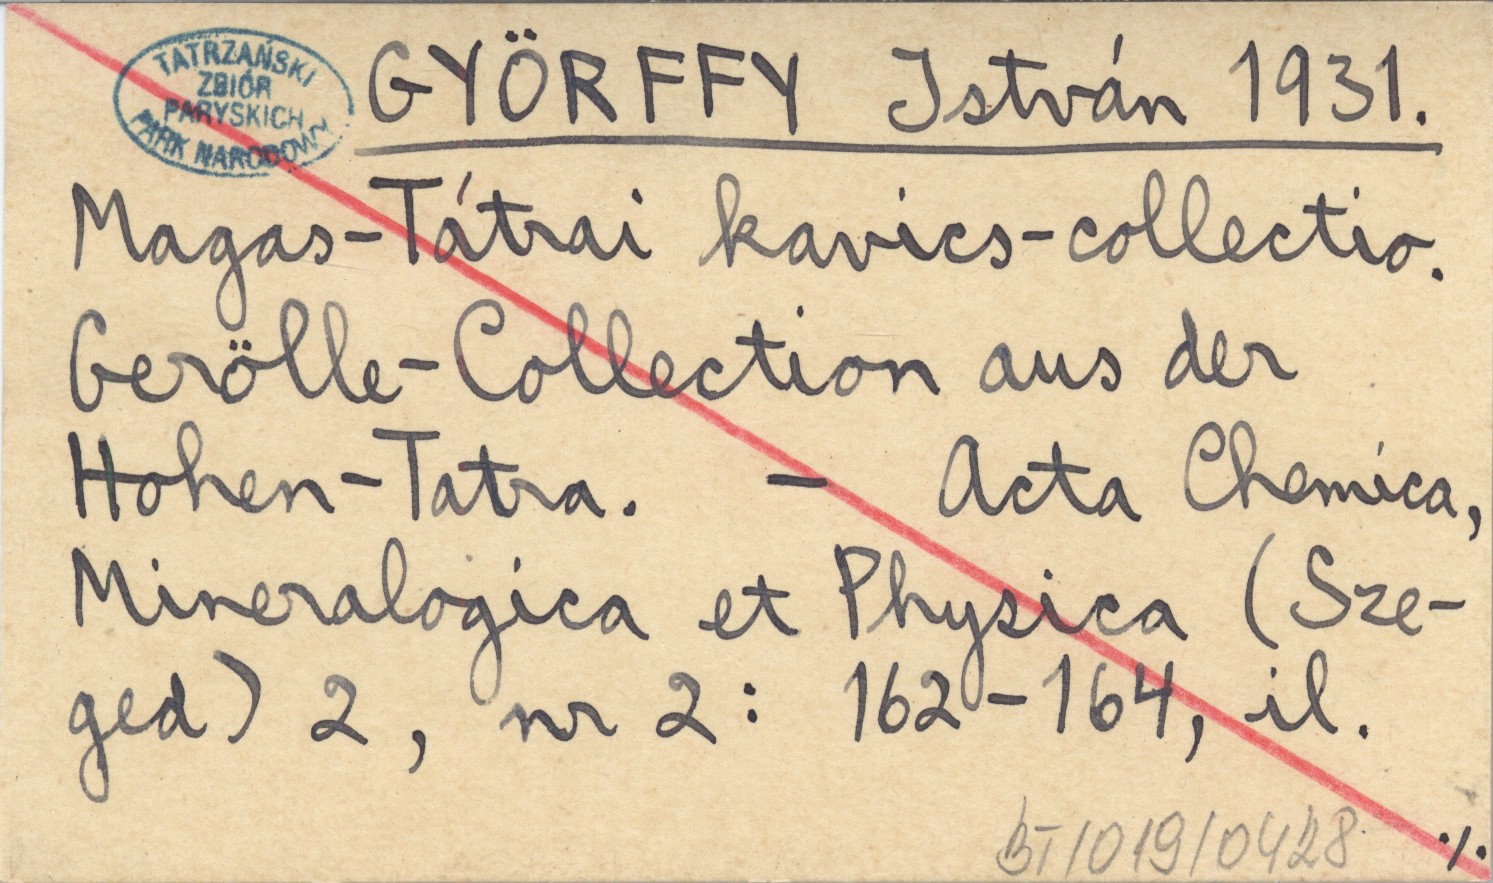 TATRZAŃSKI
ZBIÓR
PARYSKICH
PARK NARODOWY
GYÖRFFY István 1931.
Magas-Tátrai kavics-collectio.
Gerölle-Collection aus der
Hohen-Tatra. - Acta Chemica,
Mineralogica et Physica (Sze-
ged) 2, nr 2: 162-164, il.
BT/019/0428
·/·